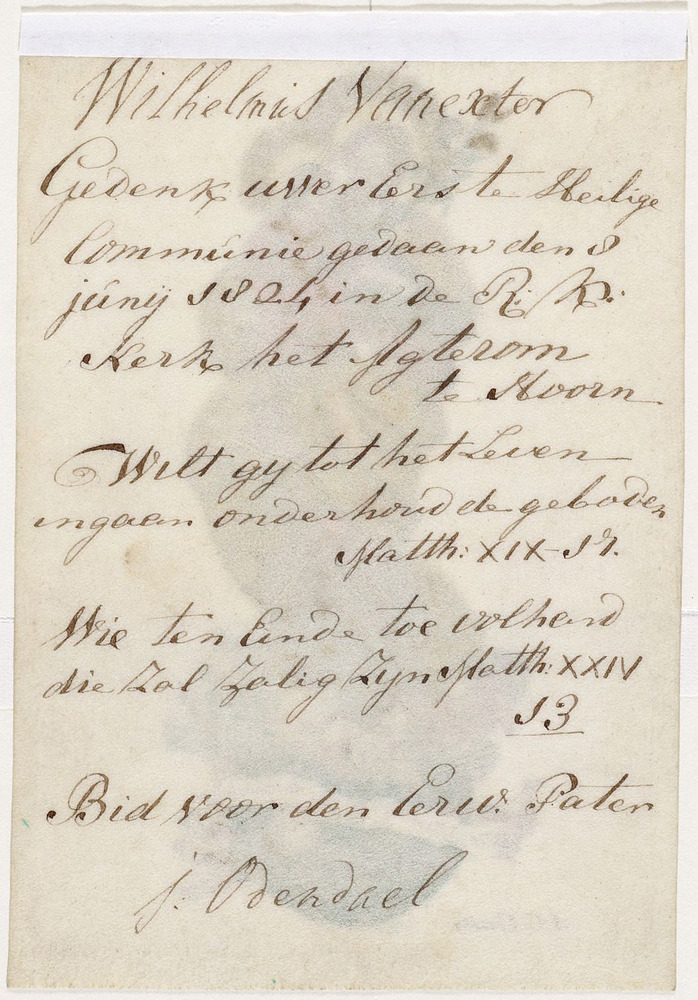 Wilhelmus Vanexter
Gedenk uwer Eerste Heilige
Communie gedaan den 8
júnij 1824 in de R: K:
Kerk het Agterom
te Hoorn
Wilt gy tot het Leven
ingaan onderhoud de geboden
Matth: XIX-17.
Wie ten Einde toe volhard
die Zal Zalig Zyn Matth: XXIV
13
Bid voor den Eerw: Pater
j: Odendael